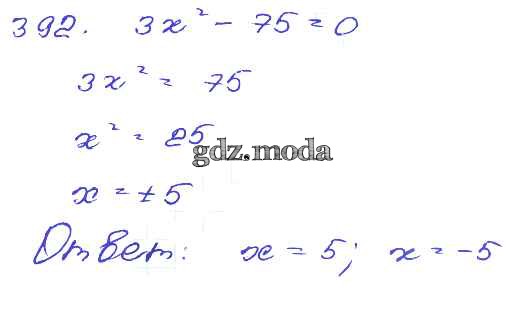 392. 3x² - 75 = 0
3x² = 75
x² = 25
gdz.moda
x = ±5
Ответ: x = 5; x = -5